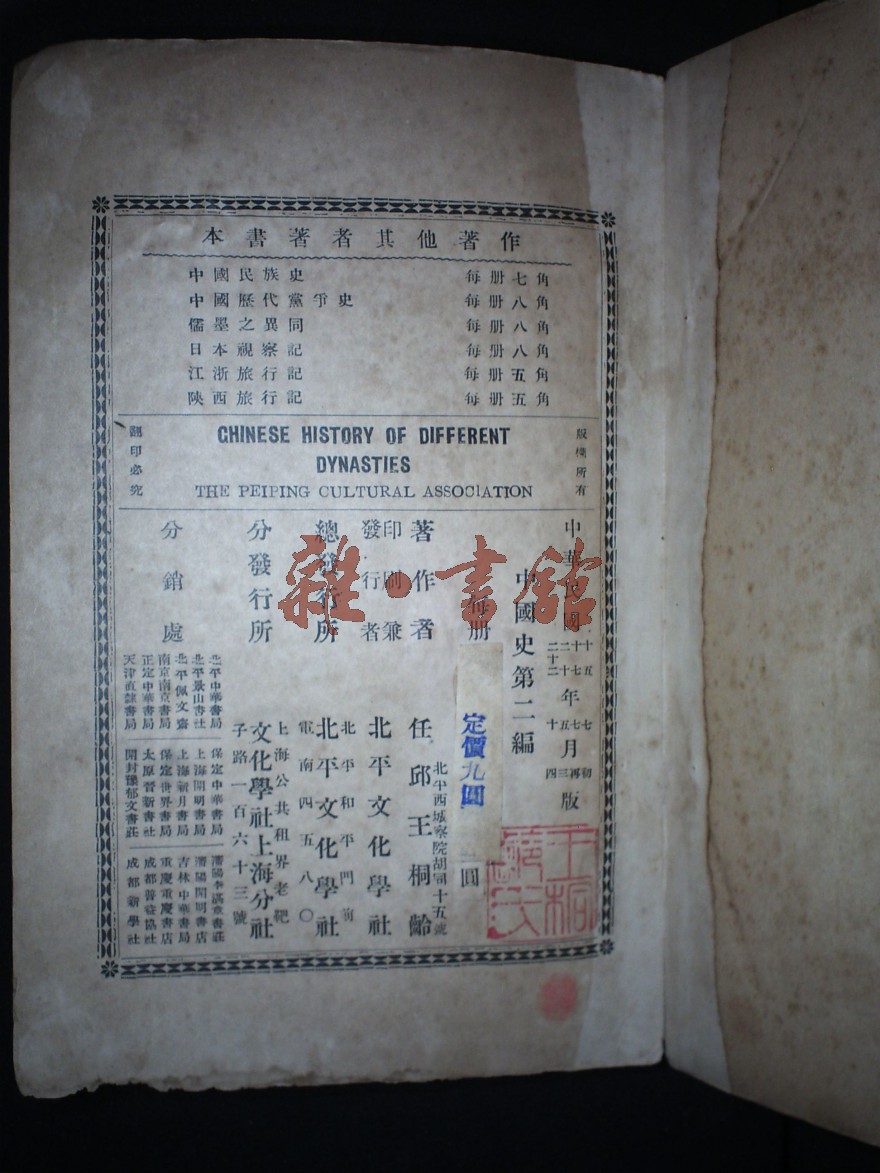 本書著者其他著作
中國民族史 每册七角
中國歷代黨爭史 每册八角
儒墨之異同 每册八角
日本視察記 每册八角
江浙旅行記 每册五角
陝西旅行記 每册五角
版權所有
CHINESE HISTORY OF DIFFERENT
DYNASTIES
THE PEIPING CULTURAL ASSOCIATION
翻印必究
中華民國
年
月
版
中國史第二編
每册
圓
定價九圓
著作者 任邱王桐齡
北平西城察院胡同十五號
印刷兼發行者 北平文化學社
總發行所 北平文化學社
北平和平門前
電南四五八〇
分發行所 文化學社上海分社
上海公共租界老靶
子路一百六十三號
分銷處
北平中華書局
北平景山書社
北平佩文齋
南京南京書局
正定中華書局
天津直隸書局
保定中華書局
上海開明書局
上海新月書局
保定世界書局
太原晉新書社
開封豫郁文書莊
瀋陽李湛章書莊
瀋陽開明書店
吉林中華書局
重慶重慶書店
成都普益協社
成都新學社
雜·書館